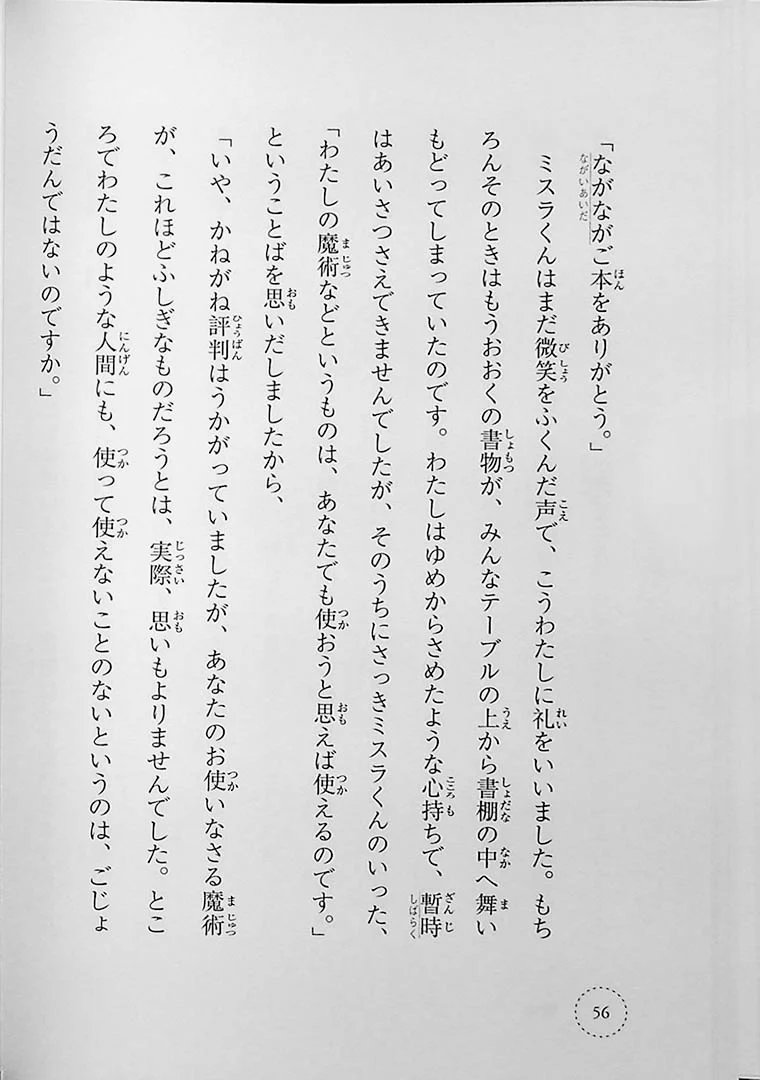 「ながながご本をありがとう。」
ミスラくんはまだ微笑をふくんだ声で、こうわたしに礼をいいました。もち
ろんそのときはもうおおくの書物が、みんなテーブルの上から書棚の中へ舞い
もどってしまっていたのです。わたしはゆめからさめたような心持ちで、暫時
はあいさつさえできませんでしたが、そのうちにさっきミスラくんのいった、
「わたしの魔術などというものは、あなたでも使おうと思えば使えるのです。」
ということばを思いだしましたから、
「いや、かねがね評判はうかがっていましたが、あなたのお使いなさる魔術
が、これほどふしぎなものだろうとは、実際、思いもよりませんでした。とこ
ろでわたしのような人間にも、使って使えないことのないというのは、ごじょ
うだんではないのですか。」
56